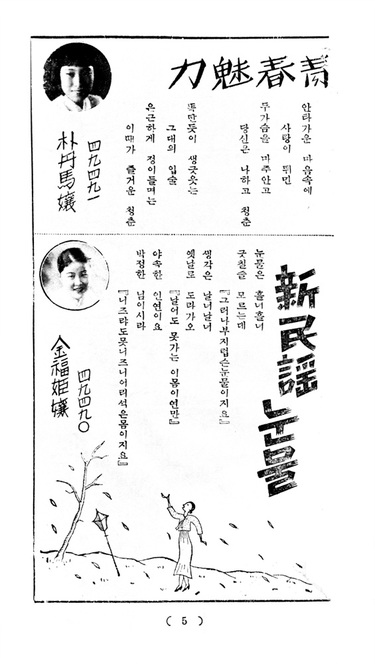 力魅春青
안타가운 마음속에
사랑이 뛰면
두가슴을 마주안고
당신은 나하고 청춘
뜻만듯이 생긋웃는
그대의 입술
은근하게 정이들며는
이때가 즐거운 청춘
四九四九一
朴丹馬孃
新民謠 눈물
눈물은 흘너흘너
긋칠줄 모르는데
『그러나부지럽슨눈물이지요』
생각은 날너날너
옛날로 도라가오
『날어도 못가는 이몸이언만』
야속한 인연이요
박정한 님이시라
『니즈랴도못니즈니어리석은몸이지요』
四九四九〇
金福姬孃
( 5 )